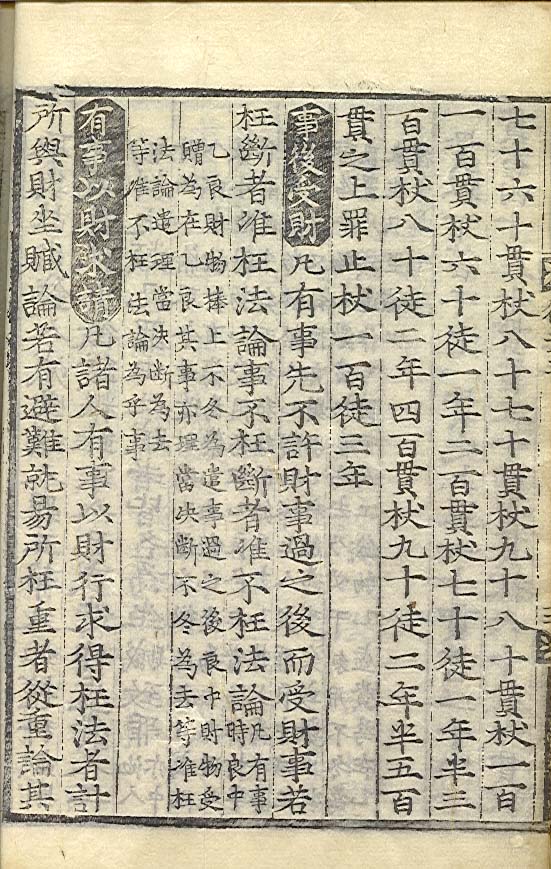 七十六十貫杖八十七十貫杖九十八十貫杖一百
一百貫杖六十徒一年二百貫杖七十徒一年半三
百貫杖八十徒二年四百貫杖九十徒二年半五百
貫之上罪止杖一百徒三年
事後受財凡有事先不許財事過之後而受財事若
枉斷者准枉法論事不枉斷者准不枉法論凡有事
時良中
乙良財物捧上不冬為遣事過之後良中財物受
贈為在乙良其事亦理當决斷不冬為去等准枉
法論遣理當决斷為去
等准不枉法論為乎事
有事以財求請凡諸人有事以財行求得枉法者計
所與財坐贓論若有避難就易所枉重者從重論其